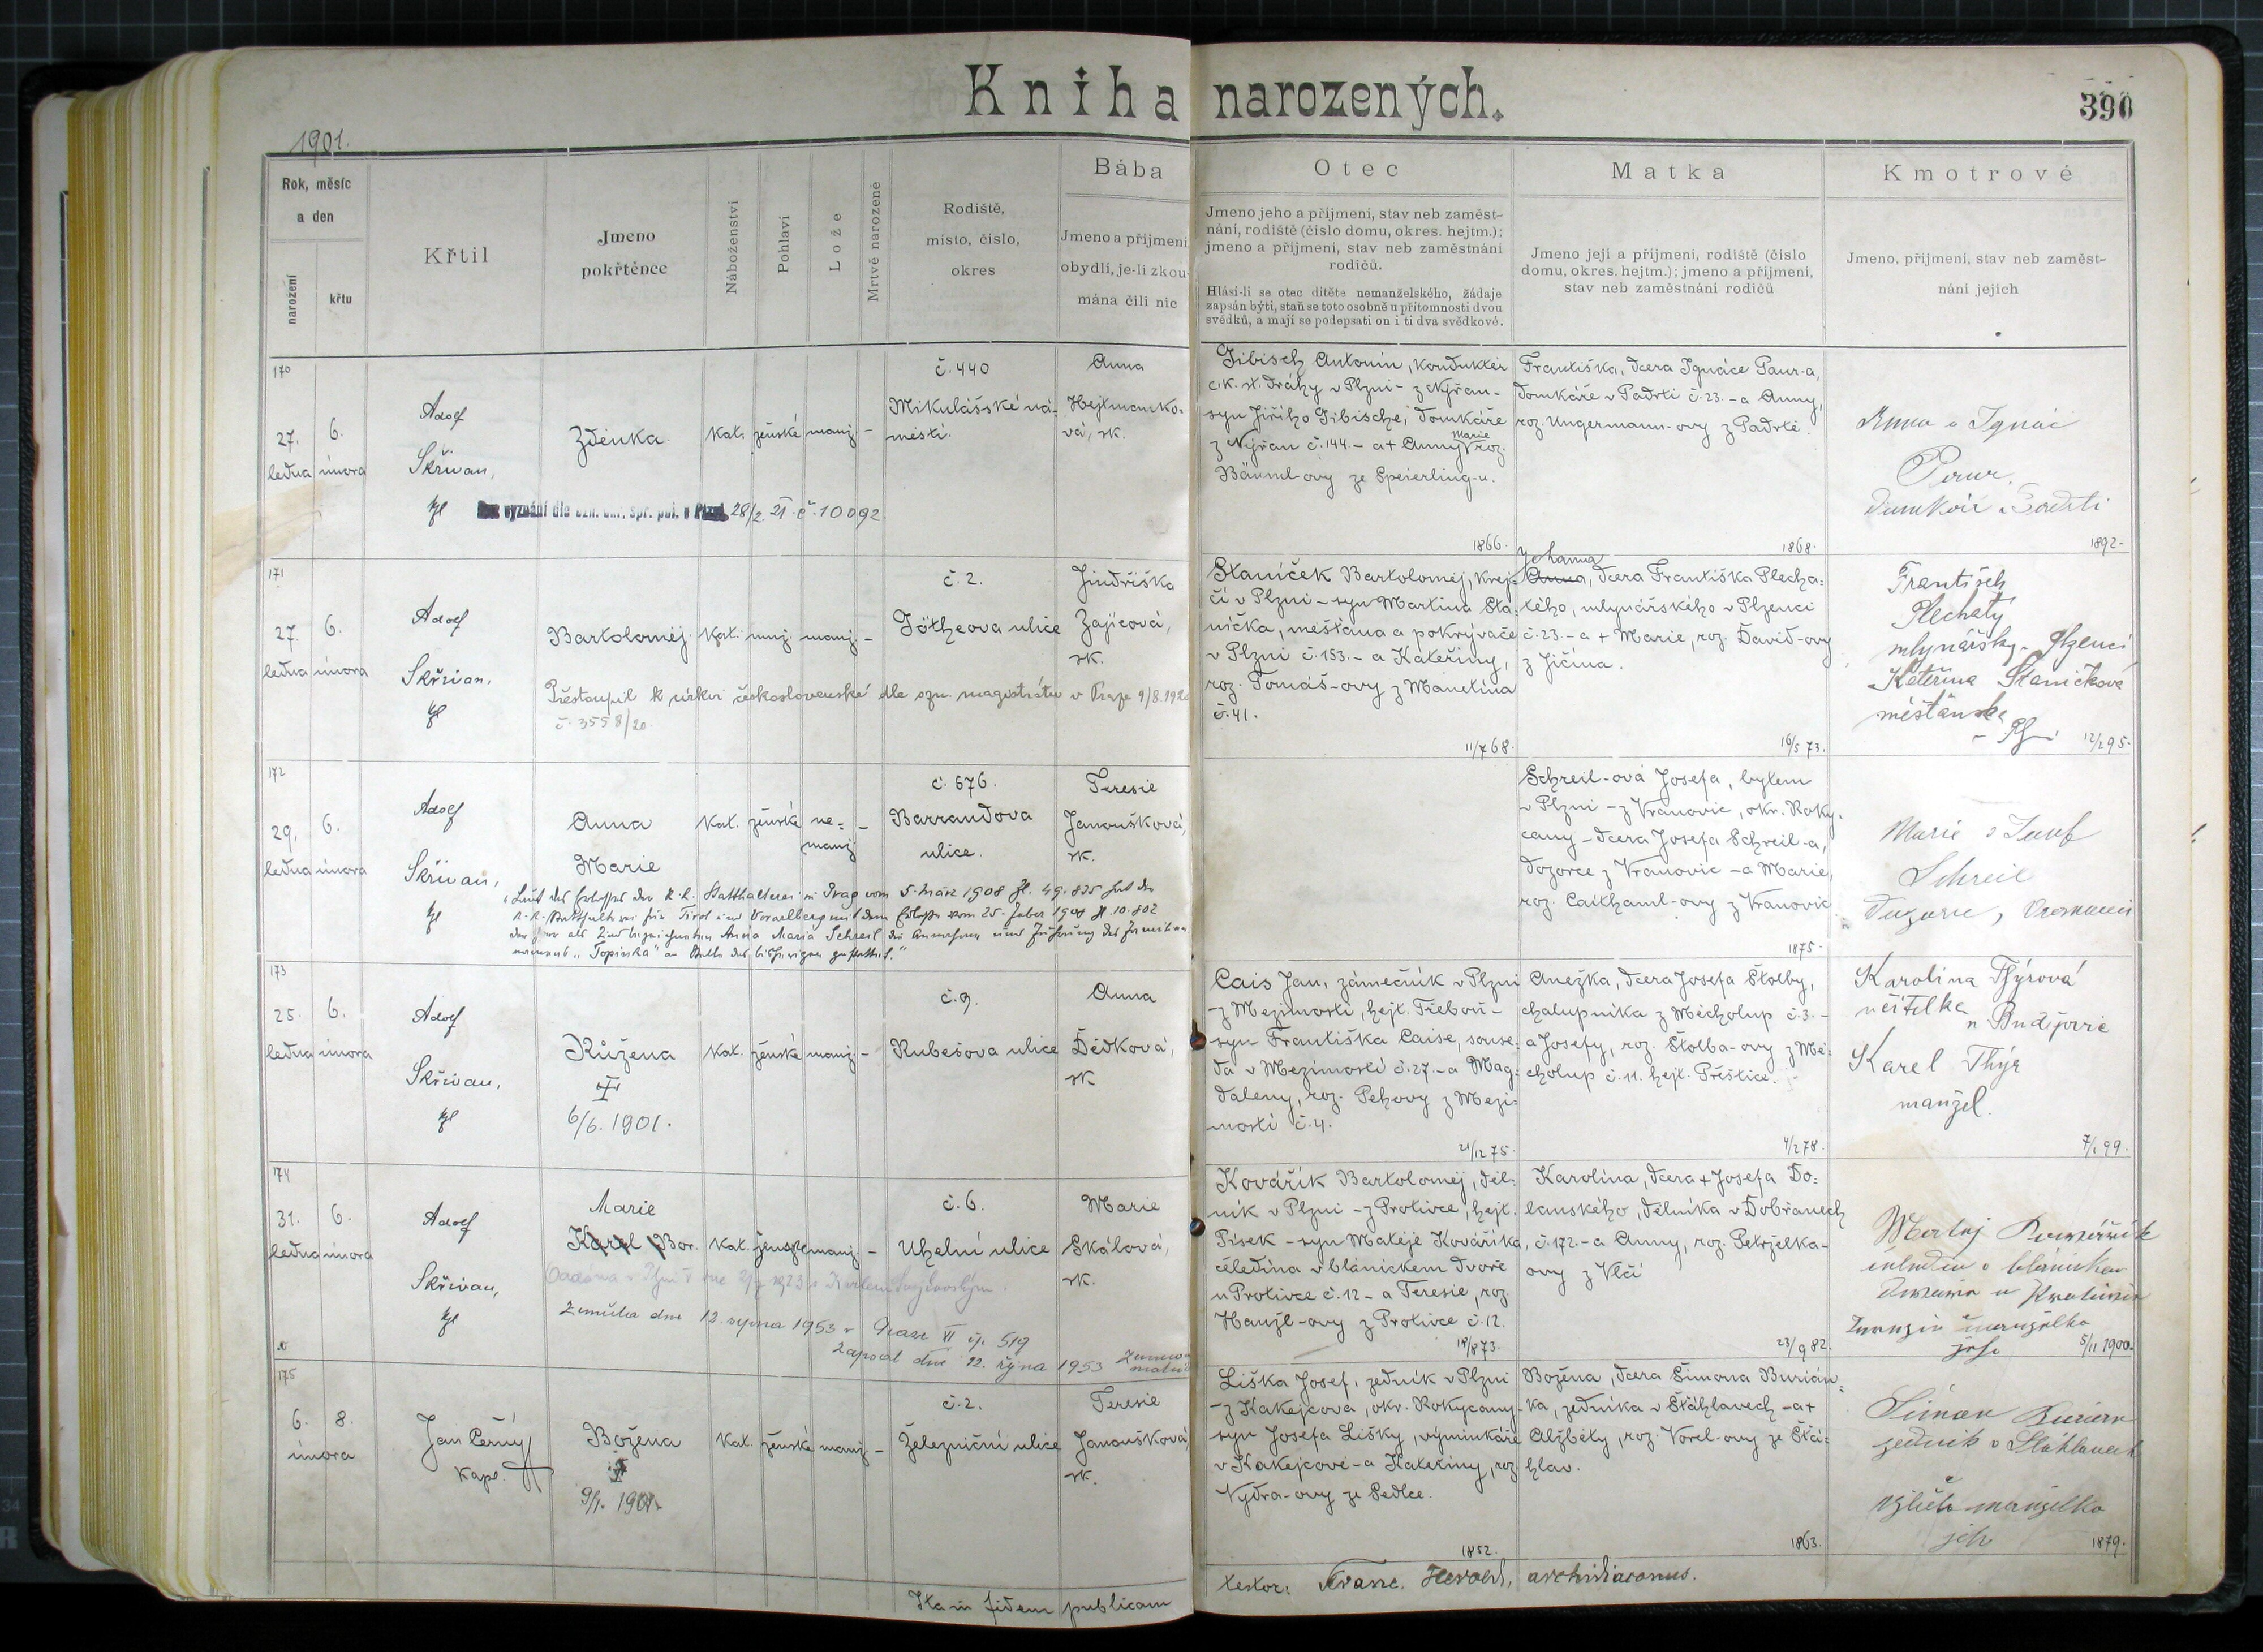 Kniha narozených.
390
1901.
Rok, měsíc
a den
narození
křtu
Křtil
Jmeno
pokřtěnce
Náboženství
Pohlaví
Lože
Mrtvě narozené
Rodiště,
místo, číslo,
okres
Bába
Jmeno a příjmení,
obydlí, je-li zkou-
mána čili nic
Otec
Jmeno jeho a příjmení, stav neb zaměst-
nání, rodiště (číslo domu, okres. hejtm.);
jmeno a příjmení, stav neb zaměstnání
rodičů.
Hlásí-li se otec dítěte nemanželského, žádaje
zapsán býti, staň se toto osobně u přítomnosti dvou
svědků, a mají se podepsati on i ti dva svědkové.
Matka
Jmeno její a příjmení, rodiště (číslo
domu, okres. hejtm.); jmeno a příjmení,
stav neb zaměstnání rodičů
Kmotrové
Jmeno, příjmení, stav neb zaměst-
nání jejich
170
27. ledna
6. února
Adolf
Skřivan,
Zdenka
kat. ženské manž. -
č. 440
Mikulášské ná-
městí.
Anna
Hejtmanko-
vá, zk.
vyznání dle ozn. okr. spr. pol. v Plzni 28/2. 21. č. 10092
Gibisch Antonín, konduktér
c. k. st. dráhy v Plzni - z Nýřan -
syn Jiřího Gibische, domkáře
z Nýřan č. 144 - a + Anny Marie roz.
Bäuml-ovy ze Speierling-u.
1866.
Františka, dcera Ignáce Paur-a,
domkáře v Padrti č. 23. - a Anny,
roz. Ungermann-ovy z Padrtě.
1868.
Anna a Ignác
1892-
171
27. ledna
6. února
Adolf
Skřivan,
Bartoloměj
kat. muž. manž. -
č. 2.
Götheova ulice
Jindřiška
Zajícová,
zk.
Přestoupil k církvi československé dle ozn. magistrátu v Praze 9/8. 1920
č. 3558/20.
Staníček Bartoloměj, krej-
čí v Plzni - syn Martina Sta-
níčka, měšťana a pokrývače
v Plzni č. 153. - a Kateřiny,
roz. Tomáš-ovy z Manětína
č. 41.
11/7 68.
Johanna
Anna, dcera Františka Plecha-
tého, mlynářského v Plzenci
č. 23. - a + Marie, roz. David-ovy
z Jičína.
16/5 73.
František
Plechatý
mlynářský Plzenci
Kateřina Staníčková
měšťanka
12/2 95.
172
29. ledna
6. února
Adolf
Skřivan,
Anna
Marie
kat. ženské ne-
manž. -
č. 676.
Barrandova
ulice.
Teresie
Janoušková,
zk.
"Laut des Erlasses der k. k. Statthalterei in Prag vom 5. März 1908 Zl. 49.835 hat die
k. k. Statthalterei für Tirol und Vorarlberg mit dem Erlasse vom 25. Feber 1908 Zl. 10.802
Anna Maria Schreil die Annahme und Führung des Familien
namens "Topinka" an Stelle des bisherigen gestattet."
Schreil-ová Josefa, bytem
v Plzni - z Vranovic, okr. Roky-
cany - dcera Josefa Schreil-a,
dozorce z Vranovic - a Marie,
roz. Caithaml-ovy z Vranovic
1875-
Marie a Josef
Schreil
173
25. ledna
6. února
Adolf
Skřivan,
Růžena
6/6. 1901.
kat. ženské manž. -
č. 9.
Rubešova ulice
Anna
Dědková,
zk
Cais Jan, zámečník v Plzni
- z Mezimostí, hejt. Třeboň -
syn Františka Caise, souse-
da v Mezimostí č. 27. - a Mag-
daleny, roz. Pehovy z Mezi-
mostí č. 4.
21/12 75.
Anežka, dcera Josefa Štolby,
chalupníka z Měcholup č. 3. -
a Josefy, roz. Štolba-ovy z Mě-
cholup č. 11. hejt. Přeštice.
4/2 78.
Karolina Thýrová
učitelka
Budějovic
Karel Thýr
manžel.
7/1 99.
174
31. ledna
6. února
Adolf
Skřivan,
Marie
Karel Bor.
kat. ženské manž. -
č. 6.
Uhelní ulice
Marie
Skálová,
zk.
Zemřela dne 12. srpna 1953 v Praze VI čj. 519
Zapsal dne 12. října 1953
Kovářík Bartoloměj, děl-
ník v Plzni - z Protivce, hejt.
Písek - syn Matěje Kovaříka,
čeledína v blanickém dvoře
u Protivce č. 12 - a Teresie, roz.
Hanžl-ovy z Protivce č. 12.
18/8 73.
Karolina, dcera + Josefa Do-
lanského, dělníka v Dobřanech
č. 172. - a Anny, roz. Petrželka-
ovy z Vlčí
23/9 82.
5/11 1900.
175
6. února
8.
Jan Černý
kapl.
Božena
9/1. 1901.
kat. ženské manž. -
č. 2.
Železniční ulice
Teresie
Janoušková
zk.
Liška Josef, zedník v Plzni
- z Kakejcova, okr. Rokycany -
syn Josefa Lišky, výminkáře
v Kakejcově - a Kateřiny, roz.
Vydra-ovy ze Sedlce.
1852.
Božena, dcera Šimona Burián-
ka, zedníka v Šťáhlavech - a +
Alžběty, roz. Vorel-ovy ze Šťá-
hlav.
1863.
zedník v Šťáhlavech
manželka
1879.
Ita in fidem publicam
testor: Franc. Herold, archidiaconus.